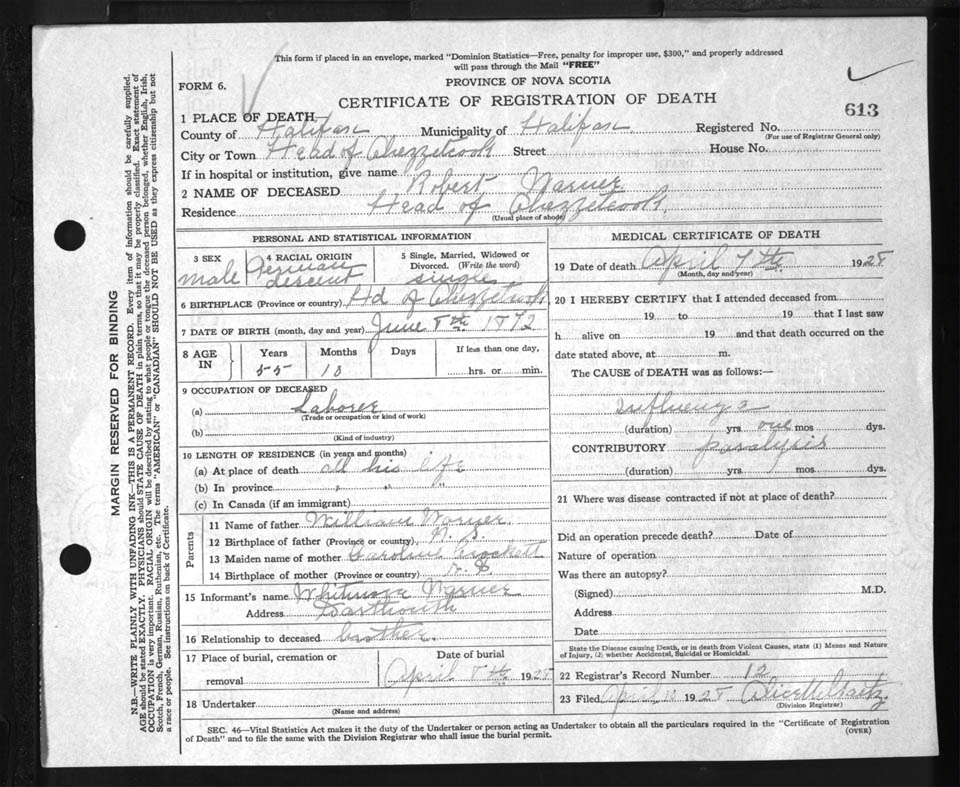 This form if placed in an envelope, marked "Dominion Statistics—Free, penalty for improper use, $300," and properly addressed
will pass through the Mail "FREE"
FORM 6.
PROVINCE OF NOVA SCOTIA
CERTIFICATE OF REGISTRATION OF DEATH
613
1 PLACE OF DEATH—
County of Halifax Municipality of Halifax Registered No.
(For use of Registrar General only)
City or Town Head of Chezzetcook Street House No.
If in hospital or institution, give name
2 NAME OF DECEASED Robert Warner
Residence Head of Chezzetcook
(Usual place of abode)
PERSONAL AND STATISTICAL INFORMATION
3 SEX male
4 RACIAL ORIGIN German descent
5 Single, Married, Widowed or Divorced. (Write the word) single
6 BIRTHPLACE (Province or country) Hd of Chezzetcook
7 DATE OF BIRTH (month, day and year) June 8th 1872
8 AGE IN Years Months Days If less than one day,
55 10 hrs. or min.
9 OCCUPATION OF DECEASED
(a) Laborer
(Trade or occupation or kind of work)
(b)
(Kind of industry)
10 LENGTH OF RESIDENCE (in years and months)
(a) At place of death all his life
(b) In province " " "
(c) In Canada (if an immigrant)
Parents
11 Name of father William Warner
12 Birthplace of father (Province or country) N. S.
13 Maiden name of mother Caroline Crockett
14 Birthplace of mother (Province or country) N. S
15 Informant's name Warner
Address Dartmouth
16 Relationship to deceased brother.
17 Place of burial, cremation or removal
Date of burial
April 8th 1928
18 Undertaker
(Name and address)
MEDICAL CERTIFICATE OF DEATH
19 Date of death April 7th 1928
(Month, day and year)
20 I HEREBY CERTIFY that I attended deceased from
19 to 19 that I last saw
h alive on 19 and that death occurred on the
date stated above, at m.
The CAUSE of DEATH was as follows:—
Influenza
(duration) yrs one mos dys.
CONTRIBUTORY paralysis
(duration) yrs mos dys.
21 Where was disease contracted if not at place of death?
Did an operation precede death? Date of
Nature of operation
Was there an autopsy?
(Signed) M.D.
Address
Date
State the Disease causing Death, or in death from Violent Causes, state (1) Means and Nature
of Injury, (2) whether Accidental, Suicidal or Homicidal.
22 Registrar's Record Number 12
23 Filed April 10 1928
(Division Registrar)
SEC. 46—Vital Statistics Act makes it the duty of the Undertaker or person acting as Undertaker to obtain all the particulars required in the "Certificate of Registration
of Death" and to file the same with the Division Registrar who shall issue the burial permit.
(OVER)
MARGIN RESERVED FOR BINDING
N.B.—WRITE PLAINLY WITH UNFADING INK—THIS IS A PERMANENT RECORD. Every item of information should be carefully supplied.
AGE should be stated EXACTLY. PHYSICIANS should STATE CAUSE OF DEATH in plain terms, so that it may be properly classified. Exact statement of
OCCUPATION is very important. RACIAL ORIGIN will be described by stating to what people or tongue the deceased person belonged, whether English, Irish,
Scotch, French, German, Russian, Ruthenian, etc. The terms "AMERICAN" or "CANADIAN" SHOULD NOT BE USED as they express citizenship but not
a race or people. See instructions on back of Certificate.